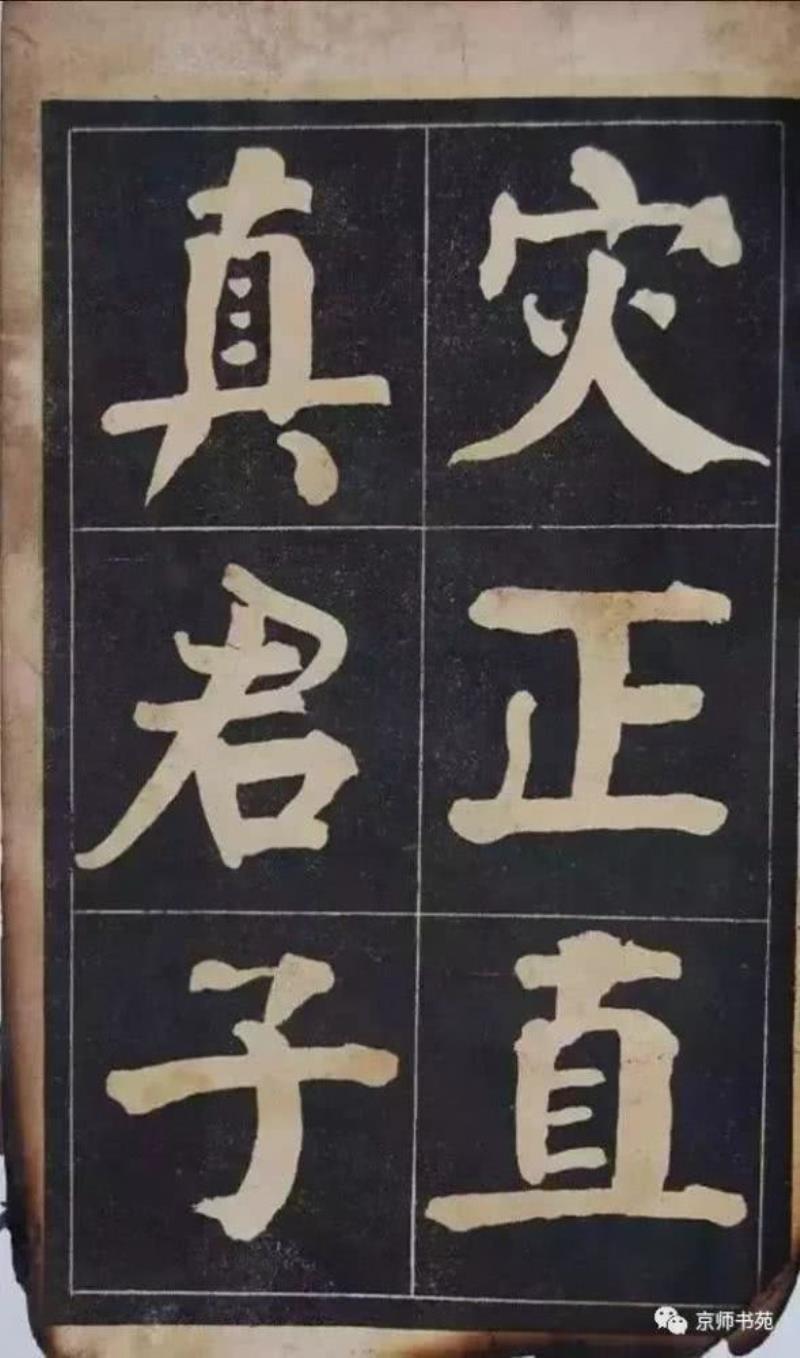 灾正直
真君子
京师书苑